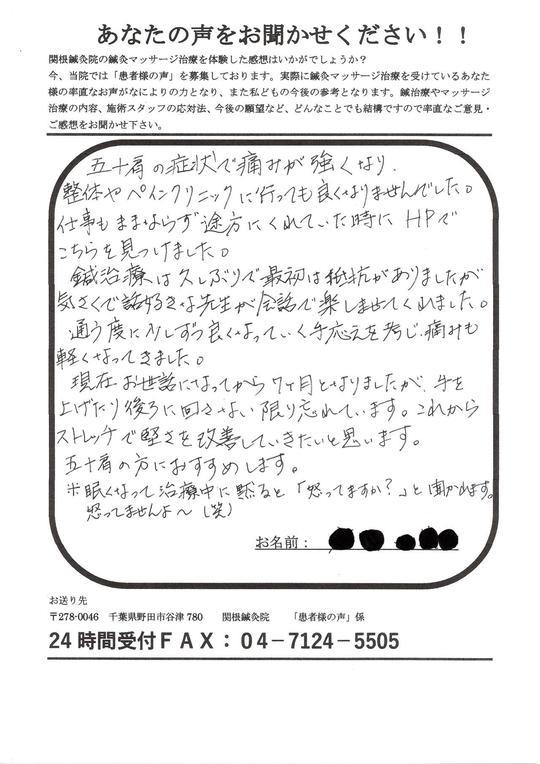 あなたの声をお聞かせください！！
関根鍼灸院の鍼灸マッサージ治療を体験した感想はいかがでしょうか？
今、当院では「患者様の声」を募集しております。実際に鍼灸マッサージ治療を受けているあなた
様の率直なお声がなによりの力となり、また私どもの今後の参考となります。鍼治療やマッサージ
治療の内容、施術スタッフの応対法、今後の願望など、どんなことでも結構ですので率直なご意見・
ご感想をお聞かせ下さい。
五十肩の症状で痛みが強くなり、
整体やペインクリニックに行っても良くなりませんでした。
仕事もままならず途方にくれていた時にHPで
こちらを見つけました。
鍼治療は久しぶりで最初は抵抗がありましたが
気さくで話好きな先生が会話で楽しませてくれました。
通う度に少しずつ良くなっていく手応えを感じ痛みも
軽くなってきました。
現在お世話になってから7ヶ月となりましたが、手を
上げたり後ろに回さない限り忘れています。これから
ストレッチで堅さを改善していきたいと思います。
五十肩の方におすすめします。
※眠くなって治療中に黙ると「怒ってますか？」と聞かれます。
怒ってませんよ～（笑）
お名前：
お送り先
〒278-0046 千葉県野田市谷津780 関根鍼灸院 「患者様の声」係
24時間受付ＦＡＸ：０４－7124－5505